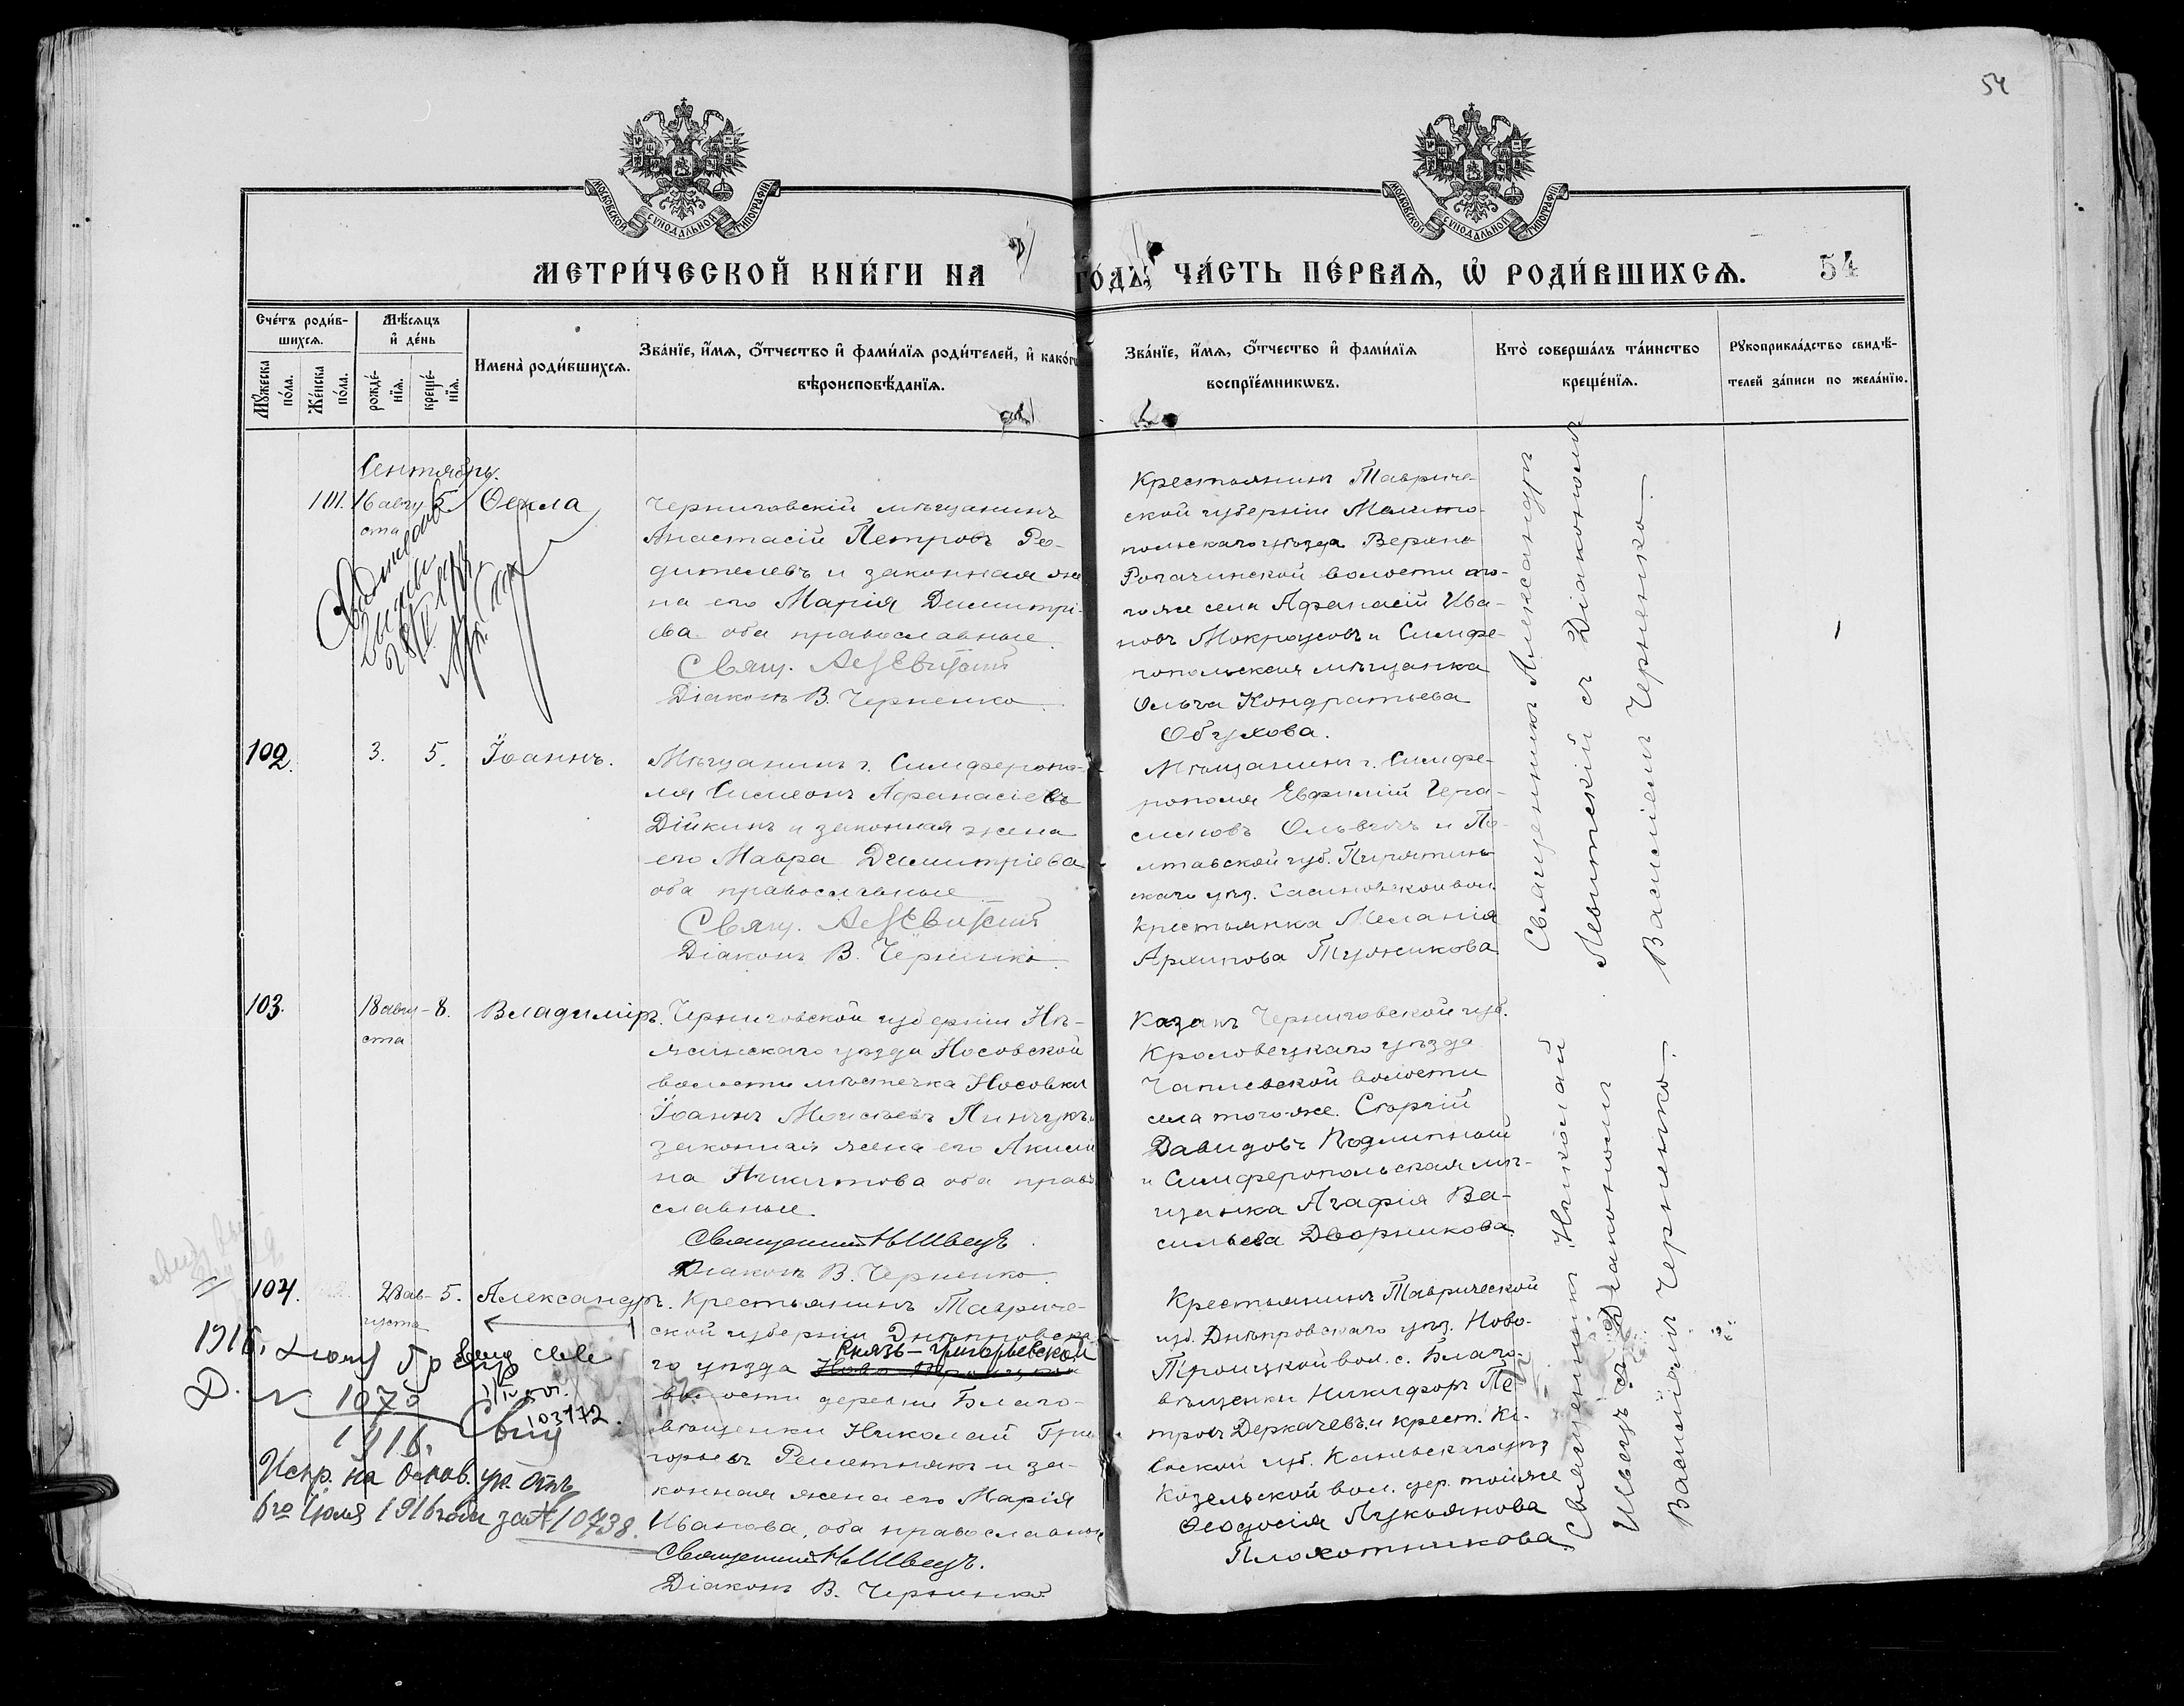 54
МОСКОВСКОЙ СѴНОДАЛЬНОЙ ТИПОГРАФІИ
МОСКОВСКОЙ СѴНОДАЛЬНОЙ ТИПОГРАФІИ
МЕТРИ́ЧЕСКОЙ КНИ́ГИ НА ГО́ДЪ, ЧА́СТЬ ПЕ́РВАѦ, Ѡ҆ РОДИ́ВШИХСѦ. 54
Сче́тъ роди́в-
шихсѧ.
Мꙋ́жеска по́ла.
Же́нска по́ла.
Мѣ́сѧцъ
и҆ де́нь
рожде́-
нїѧ.
креще́-
нїѧ.
Имена̀ роди́вшихсѧ.
Зва́нїе, и҆́мѧ, ѻ҆́тчество и҆ фами́лїѧ роди́телей, и҆ како́гѡ
вѣроисповѣ́данїѧ.
Зва́нїе, и҆́мѧ, ѻ҆́тчество и҆ фами́лїѧ
воспрїе́мникѡвъ.
Кто̀ соверша́лъ та́инство
креще́нїѧ.
Рꙋкоприкла́дство свидѣ́-
телей за́писи по жела́нїю.
Сентябрь.
16 авгу-
ста
5
Ѳекла
Черниговскій мѣщанинъ
Анастасій Петровъ Ро-
дителевъ и законная же
на его Марія Димитрі-
ева оба православные
Свящ. А Левитскій
Діаконъ В. Черненко
Крестьянинъ Тавриче-
ской губерніи Мелито-
польскаго уѣзда Верхне
Рогачинской волости то-
гоже села Афанасій Ива-
новъ Мокроусовъ и Симфе-
ропольская мѣщанка
Ольга Кондратьева
Обухова.
Священникъ Александръ
Левитскій съ Діакономъ
Василіемъ Черненко
102.
3.
5.
Іоаннъ.
Мѣщанинъ г. Симферопо-
ля Симеонъ Афанасіевъ
Дійкинъ и законная жена
его Мавра Димитріева
оба православные
Свящ. А Левитскій
Діаконъ В. Черненко
Мѣщанинъ г. Симфе-
рополя Евфимій Гера-
симовъ и По-
лтавской губ. Пирятин-
скаго уѣз. вол.
крестьянка Меланія
Архипова
103.
18 авгу-
ста
8.
Владиміръ.
Черниговской губерніи Нѣ-
жинскаго уѣзда Носовской
волости мѣстечка Носовки
Іоаннъ Моисеевъ Пинчукъ и
законная жена его Акили
на Никитова оба право
славные
Священник Н Швецъ
Діаконъ В. Черненко.
Казакъ Черниговской губ.
Кролевецкаго уѣзда
Чаплевской волости
села того-же. Сергій
Давидовъ Подлипный
и Симферопольская мѣ-
щанка Агафія Ва-
сильева Дворникова
Священникъ Николай
Швецъ съ Діакономъ
Василіемъ Черненко.
104.
28 ав-
густа
5.
Александръ.
Крестьянинъ Тавриче-
ской губерніи Днѣпровска-
Князь-Григорьевской
го уѣзда Ново Троицкой
волости деревни Благо-
вѣщенки Николай Гри
горьевъ Решетнякъ и за-
конная жена его Марія
Иванова, оба православные
Священник Н Швецъ.
Діаконъ В. Черненко
Крестьянинъ Таврической
губ. Днѣпровскаго уѣз. Ново-
Троицкой вол. с. Благо-
вѣщенки Никифоръ Пе-
тровъ Деркачевъ и крест. Кі-
евской губ. Каневскаго уѣз
Козельской вол. дер. тойже
Ѳеодосія Лукьянова
Плахотникова
1916.
Д. N 1075
1916.
103472.
Испр. на основ. ук. отъ
6го Іюля 1916 года за № 10738.